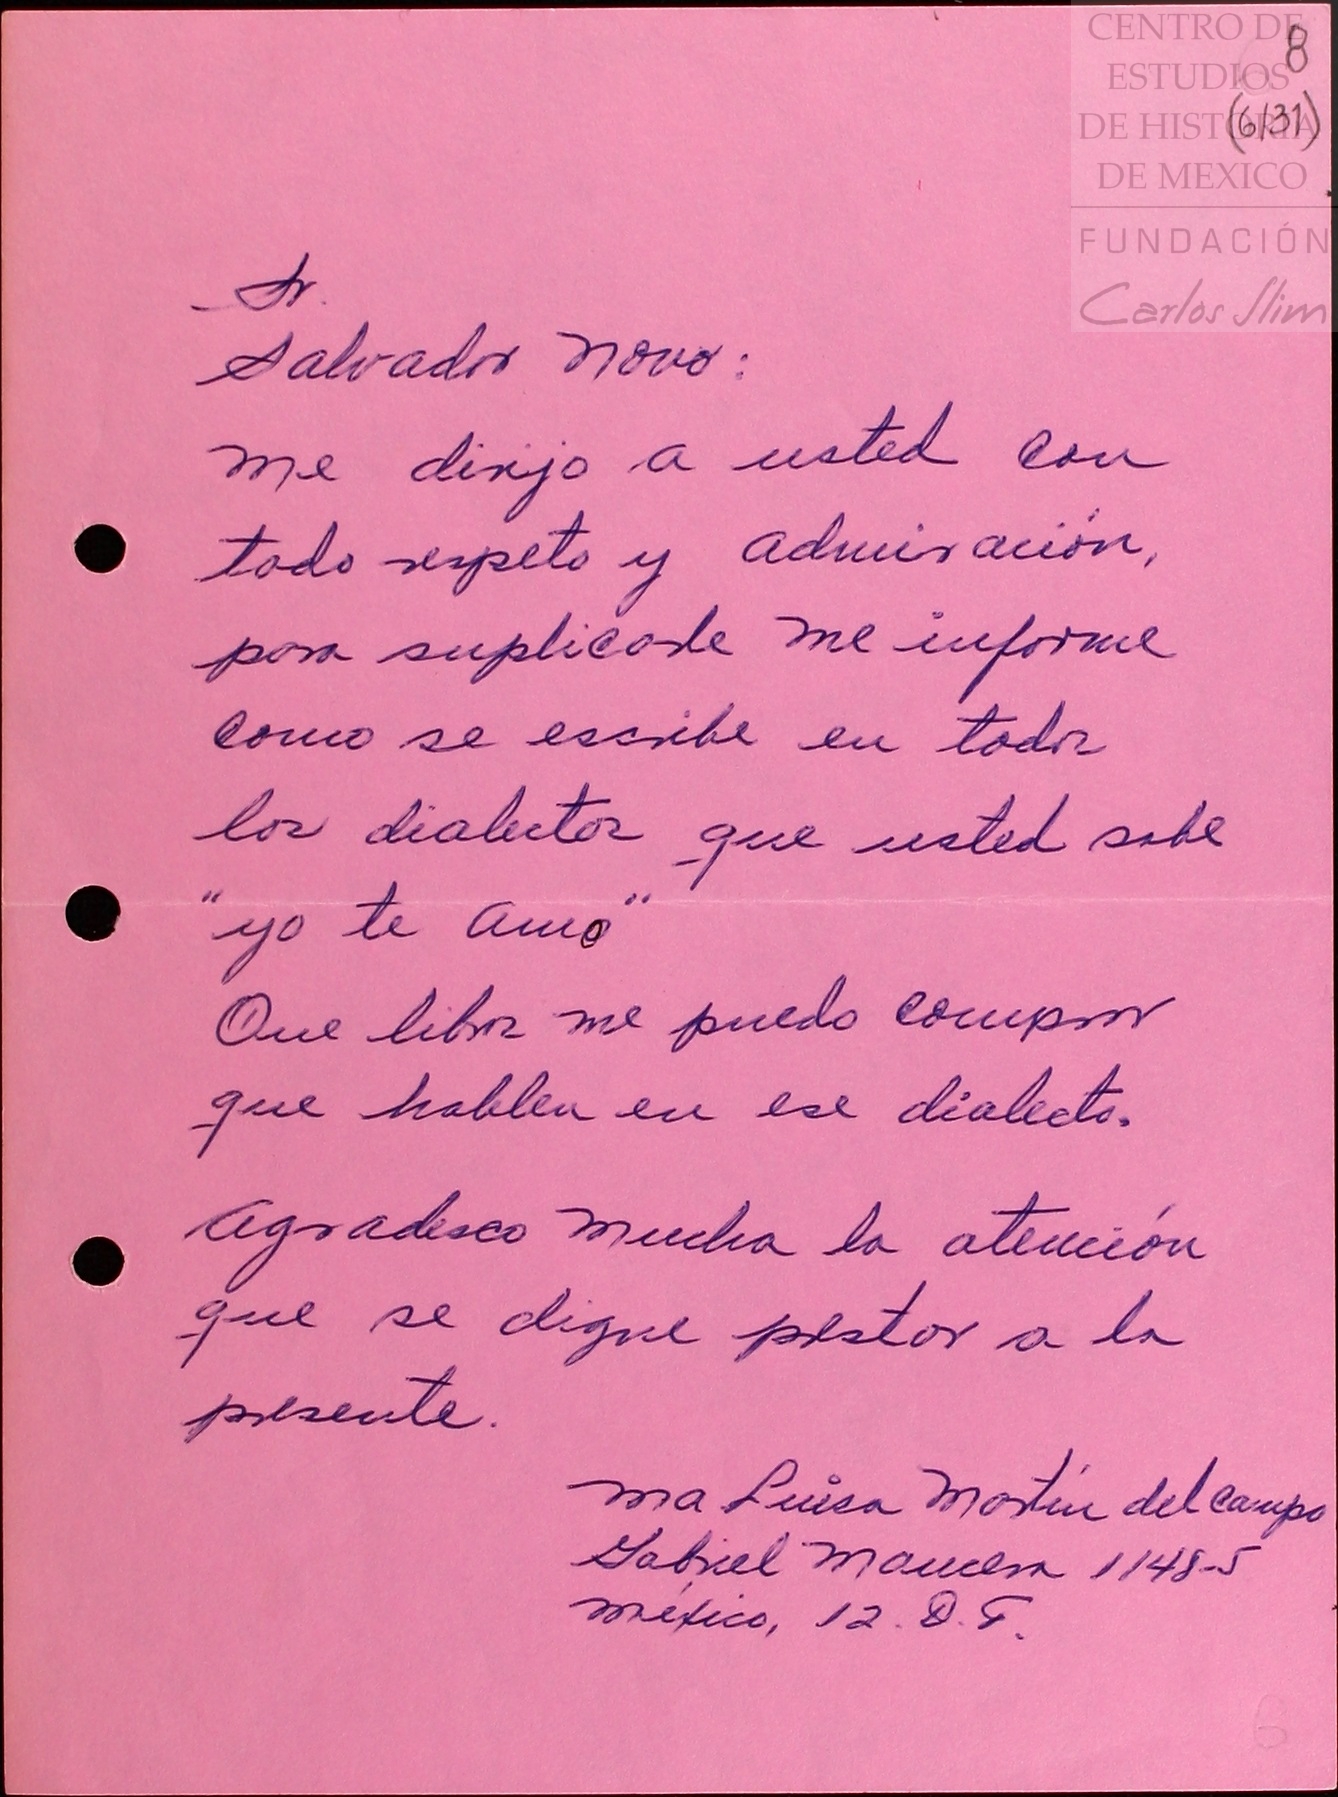 CENTRO DE
ESTUDIOS
DE HISTORIA
DE MEXICO
FUNDACIÓN
Carlos Slim
8
(6/31)
Sr.
Salvador Novo:
Me dirijo a usted con
todo respeto y admiración,
para suplicarle me informe
como se escribe en todos
los dialectos que usted sabe
"yo te amo"
Que libros me puedo comprar
que hablen en ese dialecto.
Agradesco mucha la atención
que se digne prestar a la
presente.
Ma Luisa Martín del Campo
Gabriel Mancera 1148-5
México, 12. D.F.
6